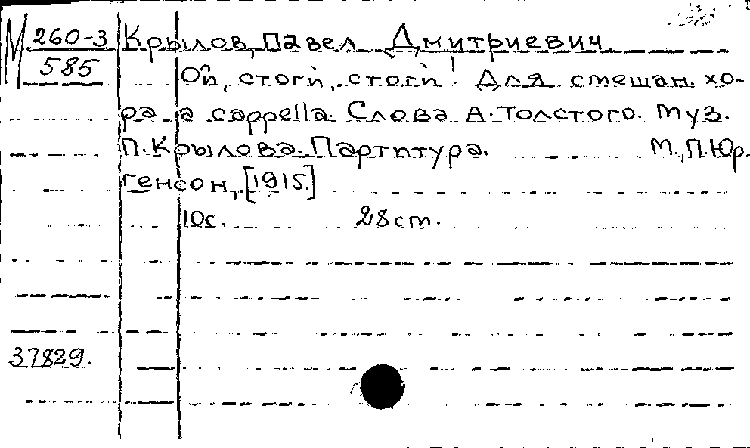 М 260-3 Крылов, Павел Дмитриевич
585 Ой, стоги, стоги! Для смешан. хо-
ра a cappella. Слова А. Толстого. Муз.
П. Крылова. Партитура. М., П. Юр-
генсон, [1915.]
10с. 28 ст.
37829.